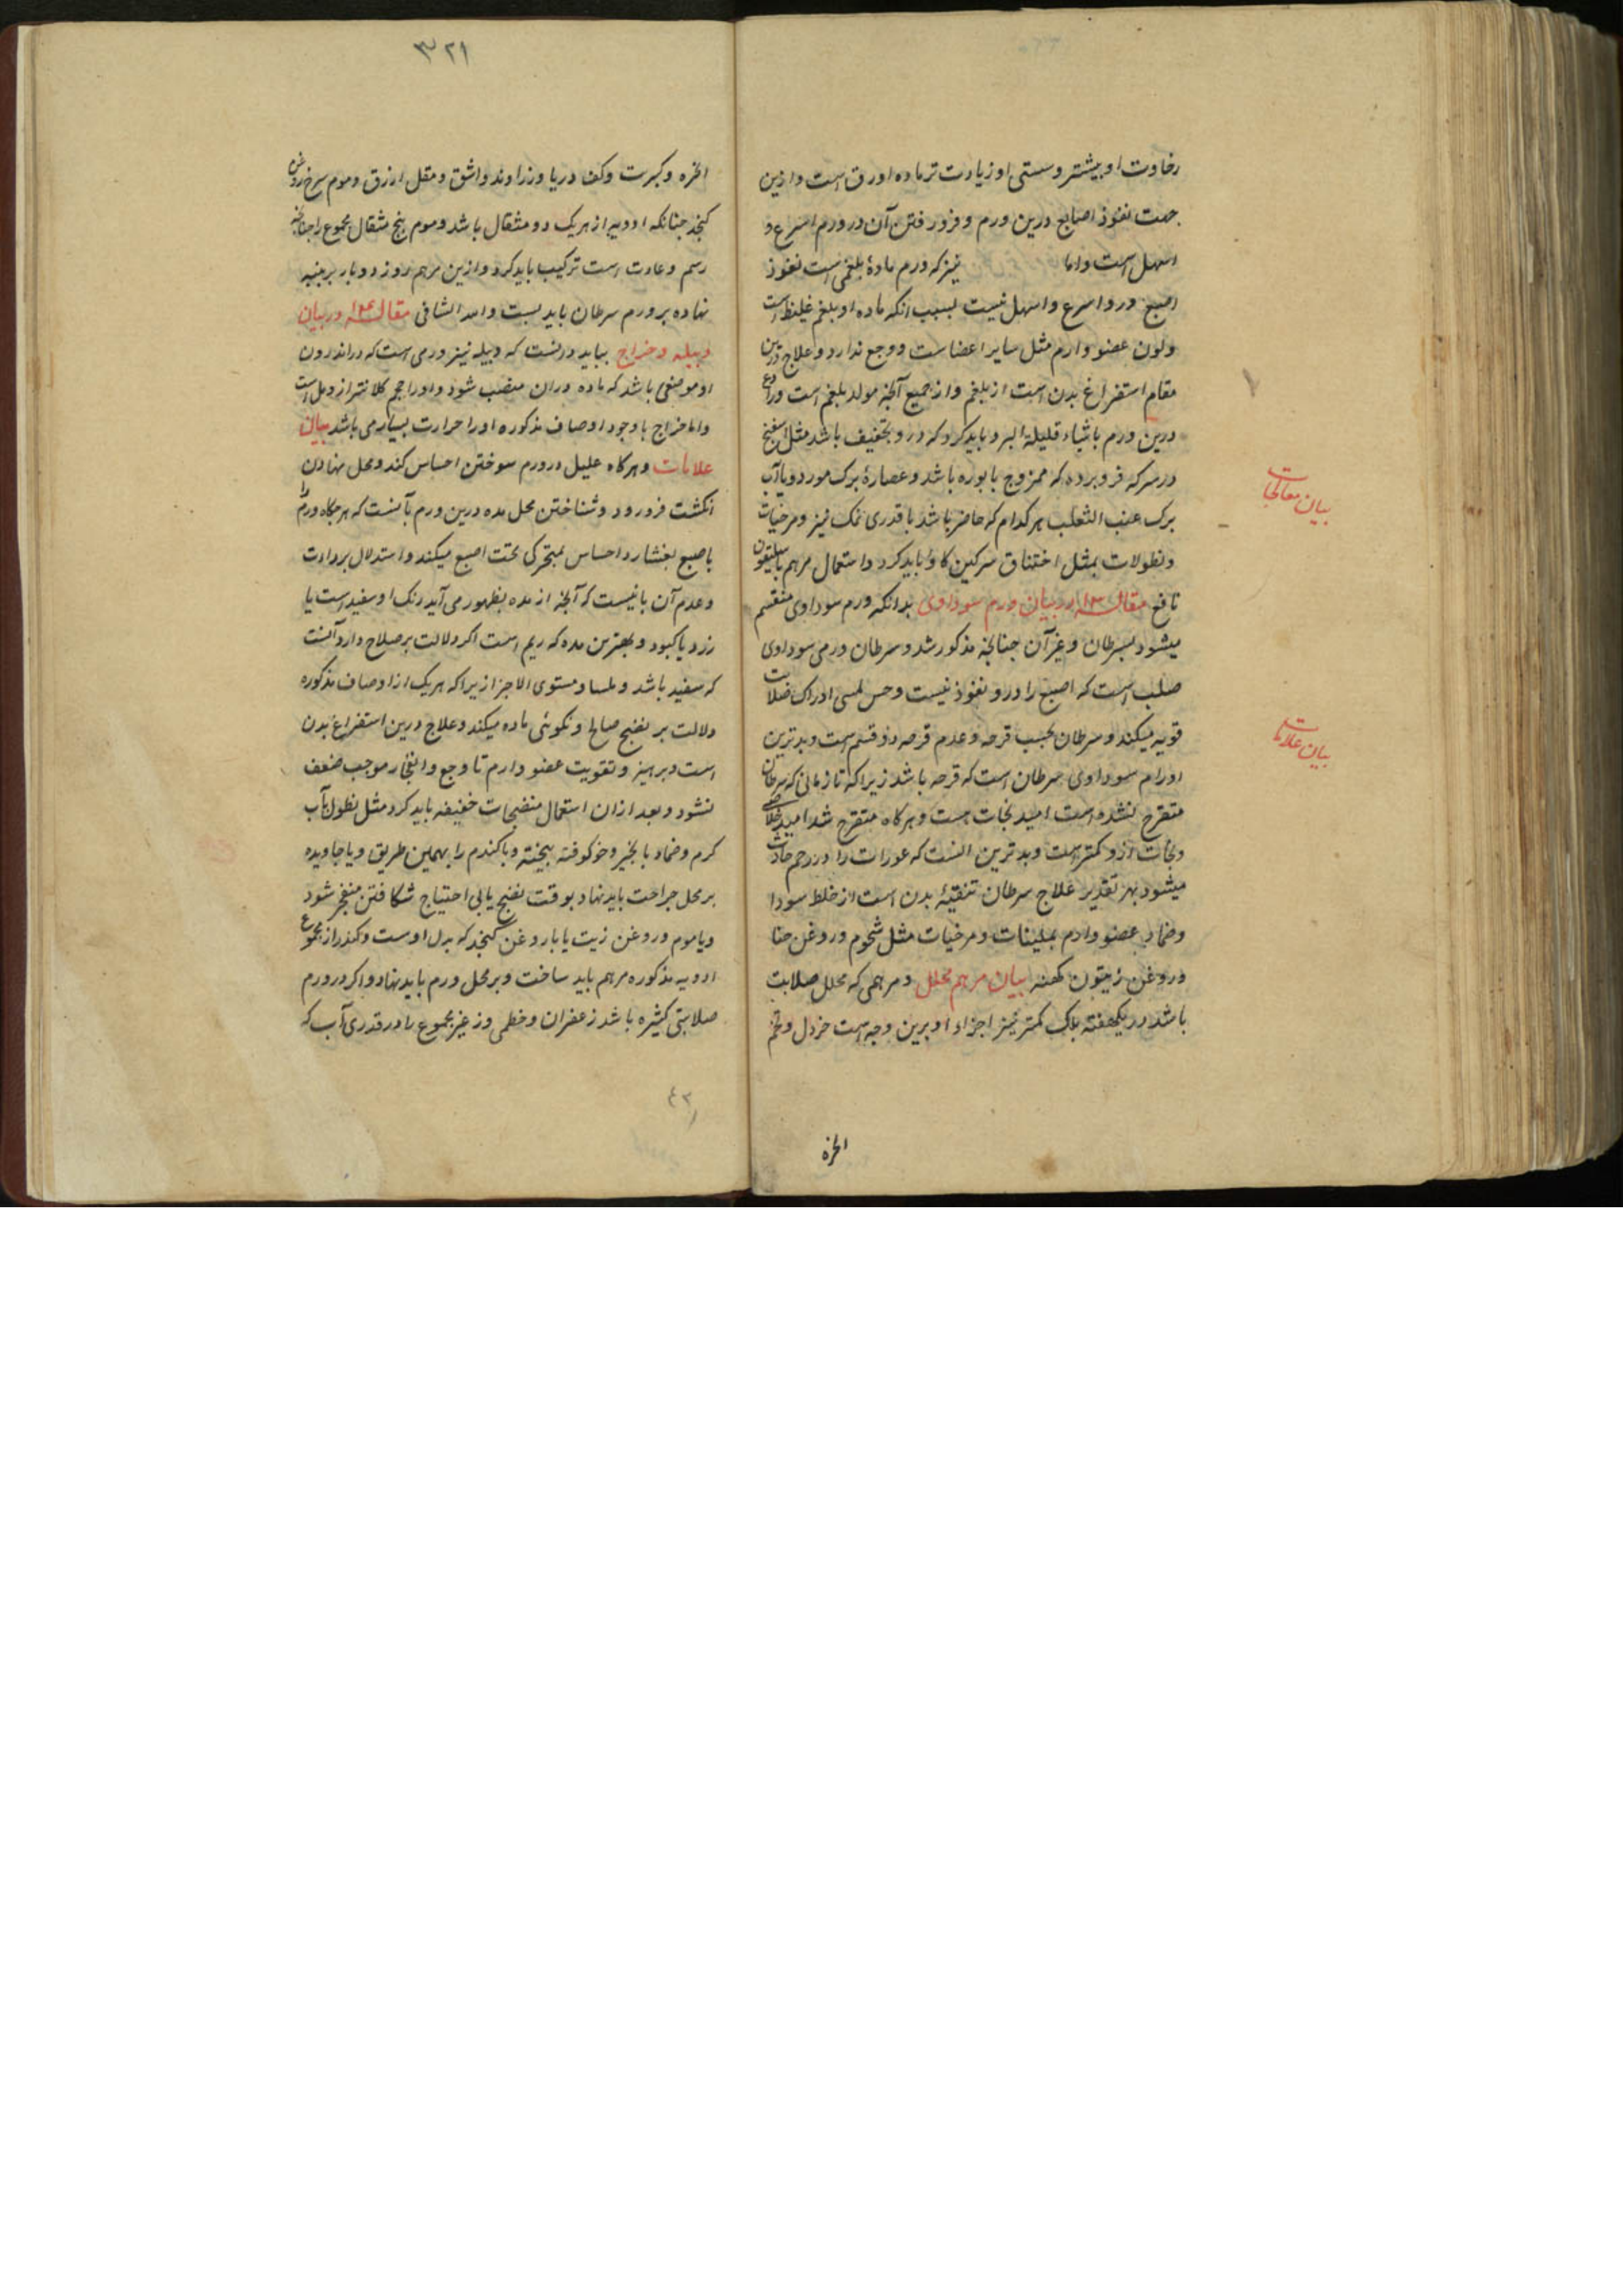 رخاوت او بیشتر و سستی او زیادت تر ماده او رق است و ازین
جهت نفوذ اصابع درین ورم و فرو رفتن آن در ورم اسرع و
اسهل است و اما نیز که ورم مادهٔ بلغمی است نفوذ
اصبع درو اسرع و اسهل نیست بسبب انکه ماده او بلغم غلیظ است
ولون عضو وارم مثل سایر اعضاست و وجع ندارد و علاج درین
مقام استفراغ بدن است از بلغم و از جمیع آنچه مولد بلغم است و رادع
درین ورم باشیاء قلیلة البرد باید کرد که درو تجفیف باشد مثل اسفنج
در سرکه فرو برده که ممزوج با بوره باشد و عصارهٔ برک مورد و با آب
برک عنب الثعلب هر کدام که حاضر باشد با قدری نمک نیز و مرخیات
و نطولات بمثل اختناق سرکین کاو باید کرد و استعمال مرهم باسلیقون
نافع مقاله ۱۳ در بیان ورم سوداوی بدانکه ورم سوداوی منقسم
میشود بسرطان و غیر آن چنانچه مذکور شد و سرطان ورمی سوداوی
صلب است که اصبع را درو نفوذ نیست و حس لمسی ادراک صلابت
قویه میکند و سرطان بحسب قرحه و عدم قرحه دو قسم است و بدترین
اورام سوداوی سرطان است که قرحه باشد زیرا که تا زمانی که سرطان
متقرح نشده است امید نجات هست و هرکاه متقرح شد امید خلاصی
و نجات ازو کمتر است و بدترین انست که عورات را در رحم حادث
میشود بهر تقدیر علاج سرطان تنقیهٔ بدن است از خلط سودا
و ضماد عضو وارم بملینات و مرخیات مثل شحوم و روغن حنا
و روغن زیتون کهنه بیان مرهم محلل و مرهمی که محلل صلابت
باشد در یکهفته بلک کمتر نیز اجزاء او برین وجه است خردل و تخم
بیان معالجات
بیان علامات
انجره
۳۲۱
انجره و کبریت و کف دریا و زراوند و اشق و مقل ازرق و موم سرخ و روغن
کنجد چنانکه ادویه از هر یک دو مثقال باشد و موم پنج مثقال مجموع را چنانچه
رسم و عادت است ترکیب باید کرد و ازین مرهم روز دو بار بر پنبه
نهاده بر ورم سرطان باید بست و الله الشافی مقاله ۱۴ در بیان
دبیله و خراج بباید دانست که دبیله نیز ورمی است که در اندرون
او موضعی باشد که ماده در ان منصب شود و او را حجم کلانتر از دمل است
و اما خراج با وجود اوصاف مذکوره او را حرارت بسیار می باشد بیان
علامات و هرکاه علیل در ورم سوختن احساس کند و محل نهادن
انکشت فرو رود و شناختن محل مده درین ورم بآنست که هرجکاه ورم را
باصبع بفشارد احساس بتحرکی تحت اصبع میکند و استدلال بر ردائت
و عدم آن بانیست که آنچه از مده بظهور می آید رنک او سفید است یا
زرد یا کبود و بهترین مده که ریم است اکر دلالت بر صلاح دارد آنست
که سفید باشد و ملسا و مستوی الاجزا زیرا که هر یک از اوصاف مذکوره
دلالت بر نضج صالح و نکوئی ماده میکند و علاج درین استفراغ بدن
است و پرهیز و تقویت عضو وارم تا وجع و انفجار موجب ضعف
نشود و بعد از ان استعمال منضجات خفیفه باید کرد مثل نطول بآب
کرم و ضماد بانجیر و خو کوفته بیخته و با کندم را بهمین طریق و یا جاویده
بر محل جراحت باید نهاد بوقت نضج یابی احتیاج شکافتن منفجر شود
و یا موم و روغن زیت یا با روغن کنجد که بدل اوست و کندر از مجموع
ادویه مذکوره مرهم باید ساخت و بر محل ورم باید نهاد و اکر در ورم
صلابتی کثیره باشد زعفران و خطمی و زغیر مجموع را در قدری آب که